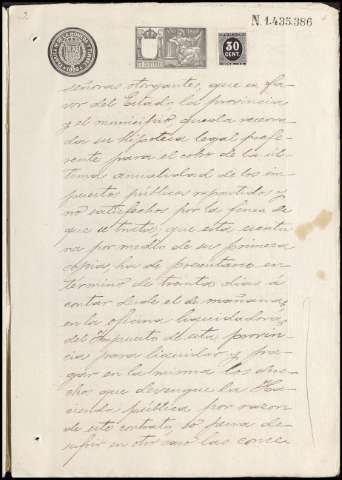 2
N. 1.435.386
30
CENT.
señoras otorgantes, que en fa-
vor del Estado, la provincia
y el municipio, queda reserva-
da su hipoteca legal prefe-
rente para el cobro de la úl-
tima anualidad de los im-
puestos públicos repartidos y
no satisfechos por la finca de
que se trata; que esta escritu-
ra por medio de su primera
copia, ha de presentarse en
término de treinta días á
contar desde el de mañana,
en la oficina liquidadora
del Impuesto de esta provin-
cia para liquidar y pa-
gar en la misma los dere-
chos que devengue la Ha-
cienda pública por razon
de este contrato, so pena de
sufrir en otro caso las conse-